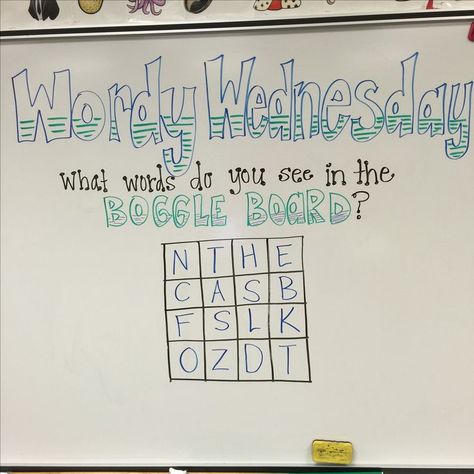 Wordy Wednesday
what words do you see in the
BOGGLE BOARD?
N T H E
C A S B
F S L K
O Z D T